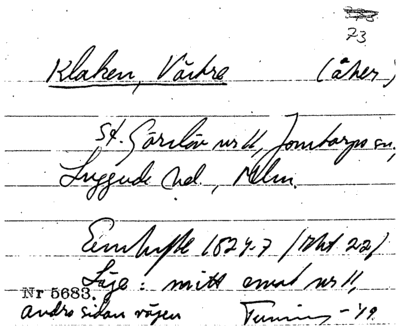 73
Klaken, Västra (åker)
St. Görslöv nr 11, Jonstorps sn,
Luggude hd., Mlm.
Enskifte 1824-7 (Akt 22)
Läge: mitt emot nr 11,
Nr 5683.
andra sidan vägen Tuning -19